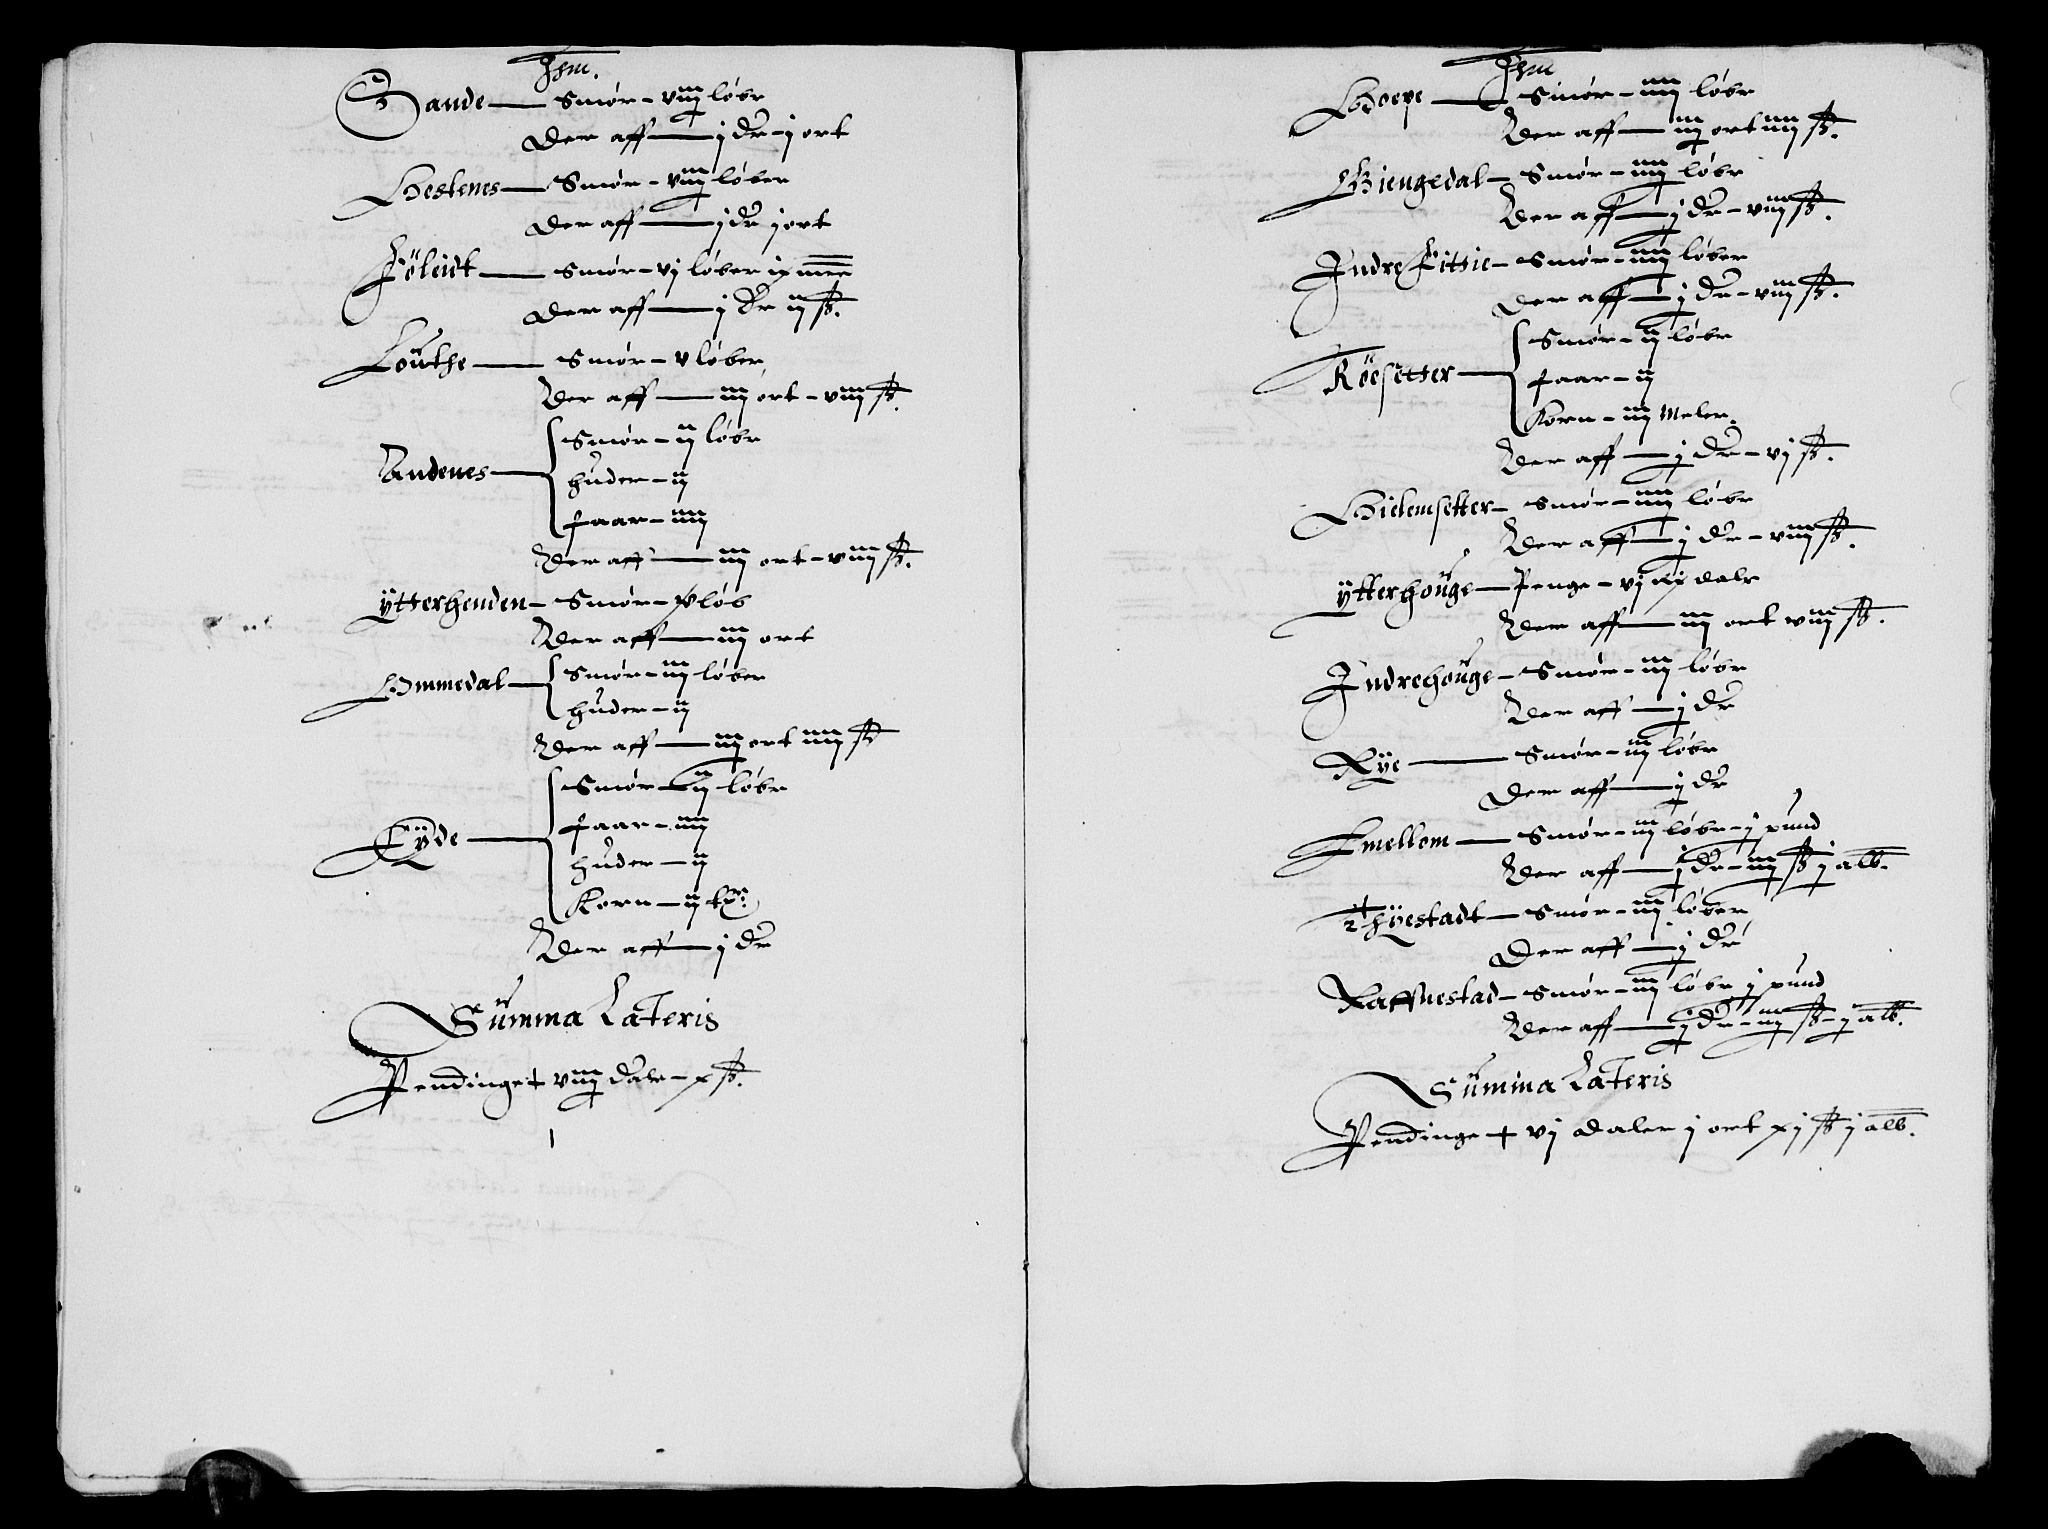 Ihm.
Sande — Smør – viij løbr
Der aff — j dr – j ort
Hestenes — Smør – viij løber
Der aff — j dr j ort
Föleidt — Smør – vj løber ix mrr
Der aff — j dr ij ß.
Loüthe — Smør – v løber
Der aff — iij ort – viij ß.
Andenes — Smør – ij løbr
hůder – ij
faar – iiij
Der aff — iij ort – viij ß.
Ÿtterhenden – Smør – v løb
Der aff — iij ort
Ommedal — Smør – iij løber
hůder – ij
Der aff — iij ort iiij ß
Eÿde — Smør – ij løbr
faar – iiij
hůder – ij
Korn – ij tr:
Der aff — j dr
Sümma Lateris
Pendinge + viij dalr – x ß.
Ihm
Hoepe — Smør – iiij løbr
Der aff — iij ort iiij ß.
Giengedal – Smør – iiij løbr
Der aff — j dr – viij ß.
Indre Fittie – Smør – iiij løber
Der aff — j dr – viij ß.
Röesetter — Smør – ij løbr
faar – ij
Korn – iij Meler.
Der aff — j dr – vj ß.
Hielemsetter – Smør – iiij løbr
Der aff — j dr – viij ß.
Ÿtterhoüge — Penge – vj Rj dalr
Der aff — iij ort viij ß.
Indrehoüge – Smør – iij løbr
Der aff — j dr
Rÿe — Smør – iij løbr
Der aff — j dr
Imellom — Smør – iij løbr – j pund
Der aff — j dr – iij ß j alb.
Thÿestadt — Smør – iij løber
Der aff — j dr
Raffnestad – Smør – iij løbr j pund
Der aff — j dr – iij ß – j alb.
Sümma Lateris
Pendinge + vj daler j ort xj ß j alb.